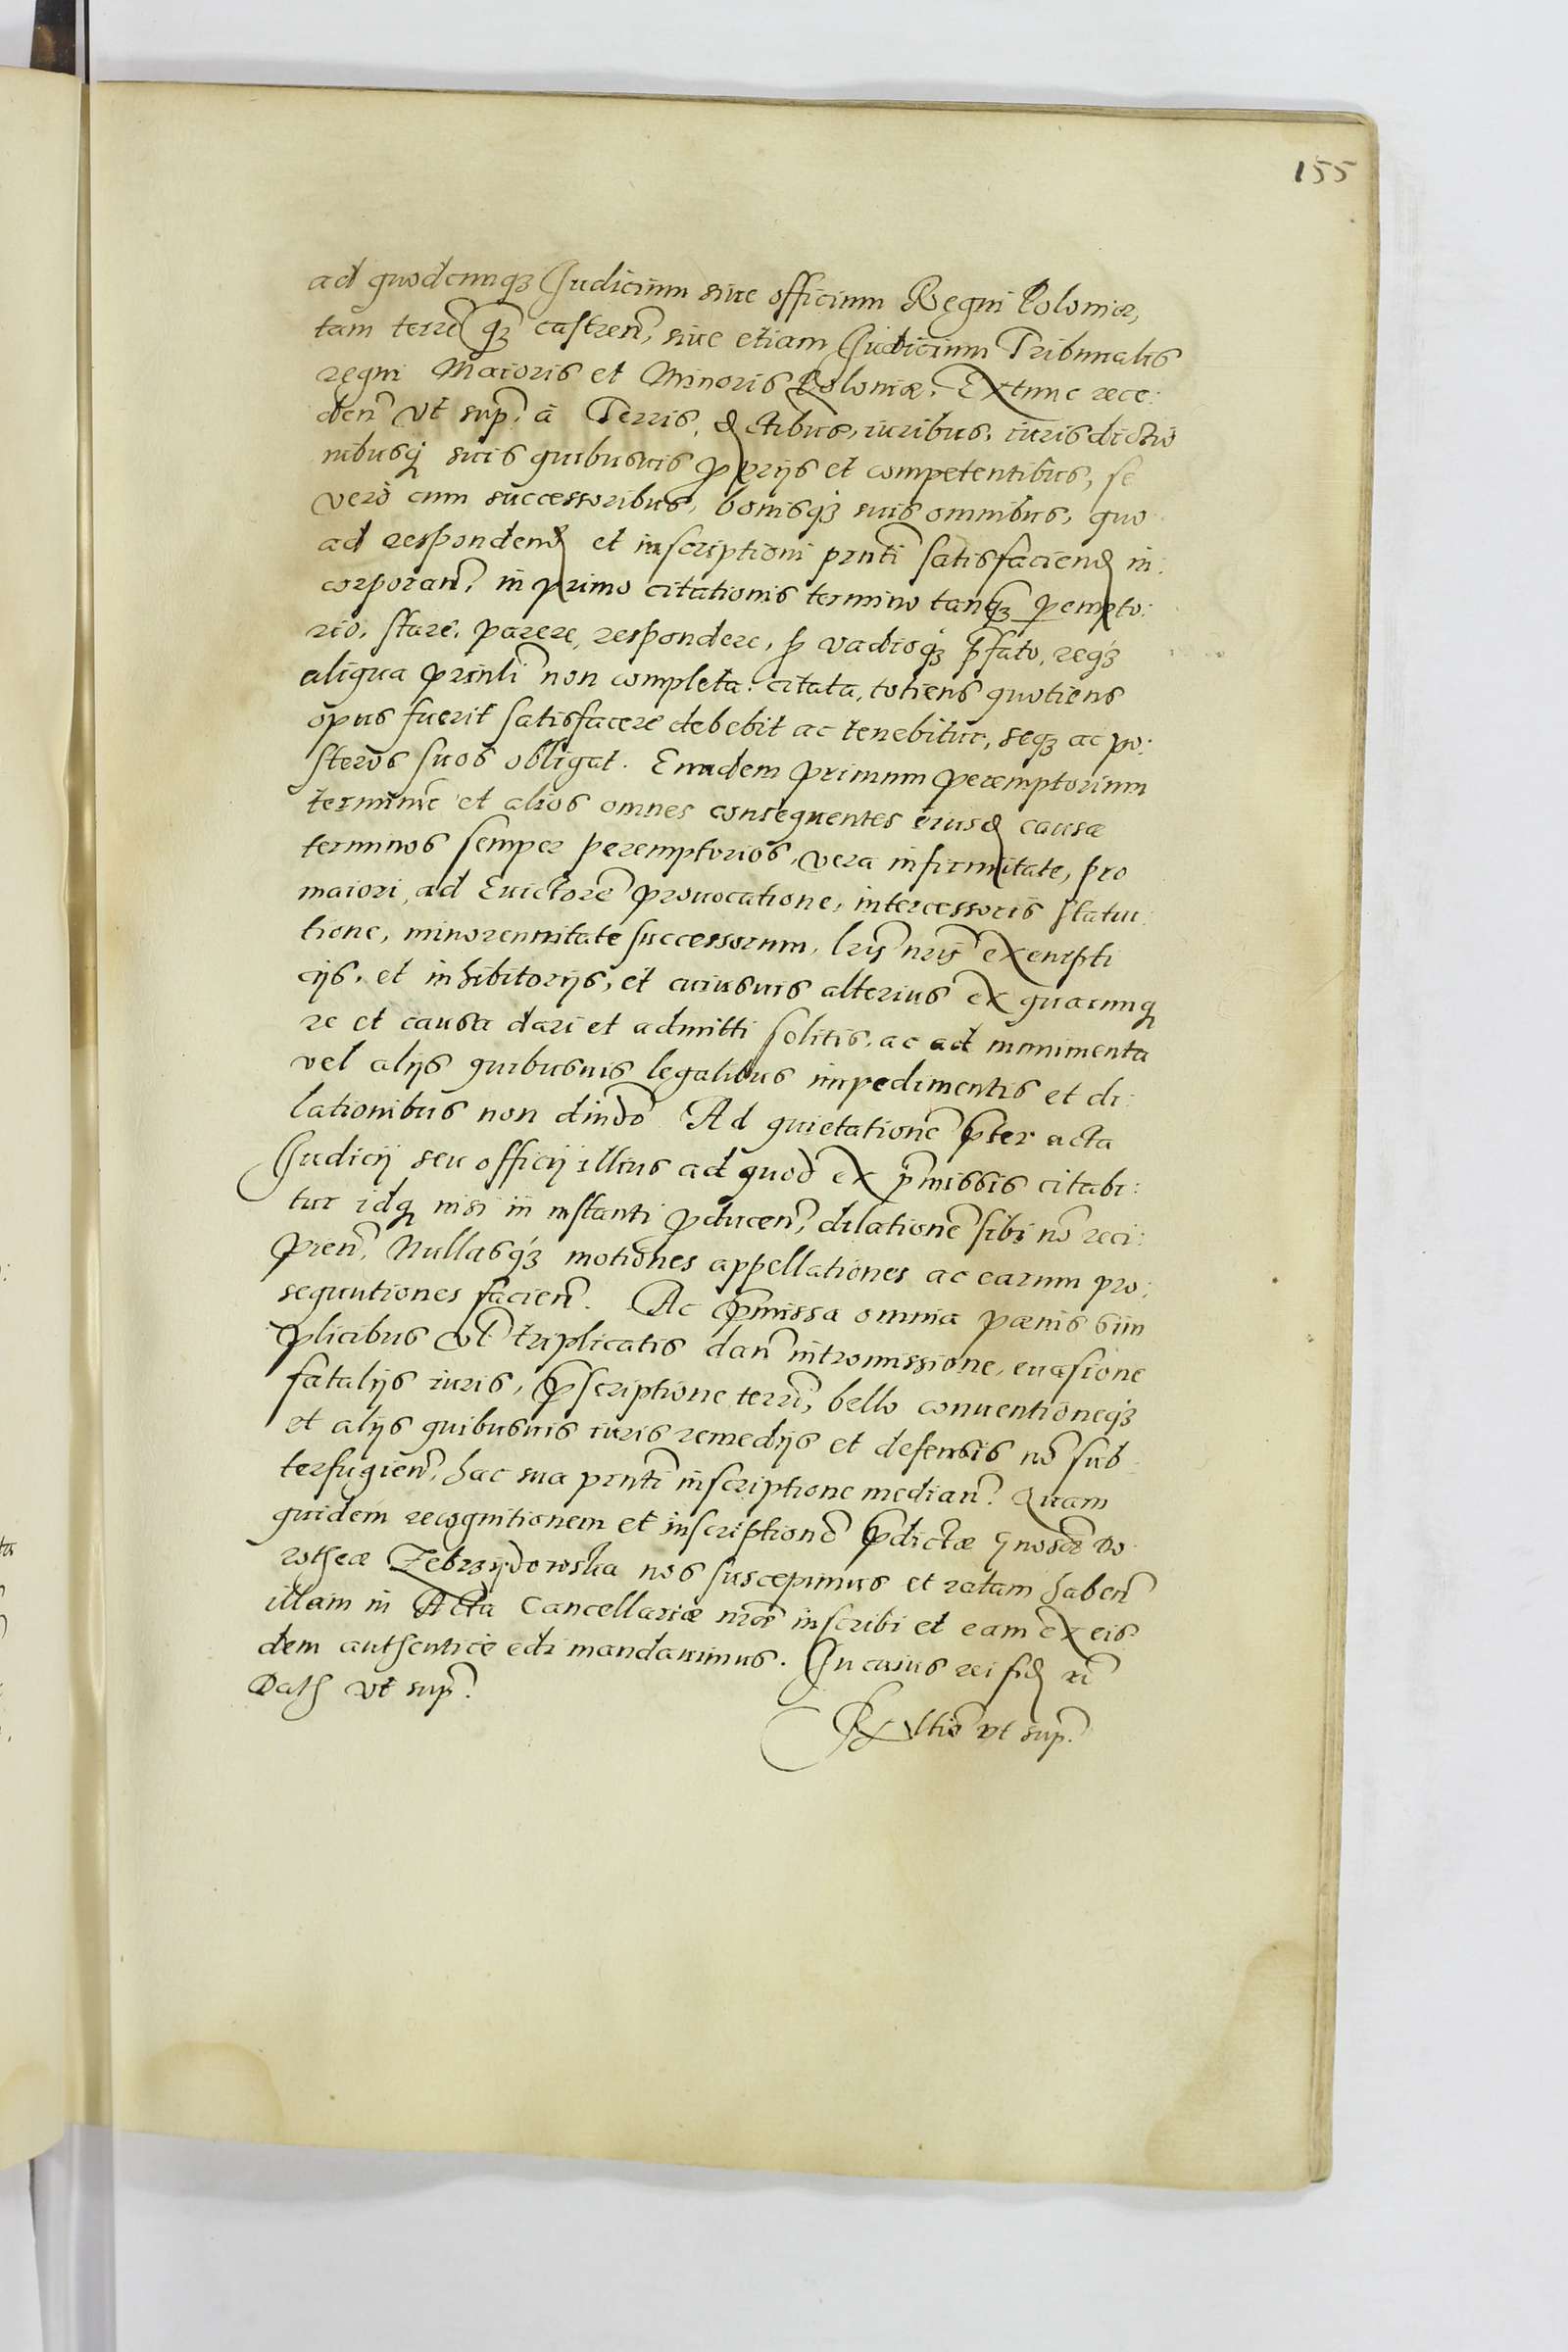 155
ad quodcunqꝫ Judicium siue officium Regni Poloniæ,
tam terrẽ qꝫ castreñ, siue etiam Judicium Tribunalis
regni Maioris et Minoris Poloniæ. Extunc rece:
deñ vt supʳ. à Terris, distibus, iuribus, iurisdictio
nibusqꝫ suis quibusuis ꝓprijs et competentibus, se
verò cum successoribus, bonisqꝫ suis omnibus, quo
ad respondenđ et inscriptioni pñti satisfacienđ in:
corporañ, in primo citationis termino tanqꝫ ꝑempto:
rio, stare, parere, respondere, ꝑ vadioqꝫ p̃fato, reqꝫ
aliqua prĩnli non completa: citata, totiens quotiens
opus fuerit satisfacere debebit ac tenebitur, seqꝫ ac po:
steros suos obligat. Eundem primum peremptorium
terminũ et alios omnes consequentes eiusđ causæ
terminos semper peremptorios, vera infirmitate, pro
maiori, ad Euictorẽ prouocatione, intercessoris statui:
tione, minorennitate successorum, lr̃is nr̃is exempti
cijs, et inhibitorijs, et cuiusuis alterius ex quacunqꝫ
re et causa dari et admitti solitis, ac ad munimenta
vel alijs quibusuis legalibus impedimentis et di:
lationibus non diffindõ. Ad quietationẽ p̃ter acta
Judicij seu officij illius ad quod ex p̃missis citabi:
tur idqꝫ nisi in instanti ꝓducen̄, dilationẽ sibi nõ reci:
pieñ, Nullasqꝫ motiones appellationes ac earum pro:
sequutiones facieñ. Ac p̃missa omnia pænis sim
plicibus vl̃ triplicatis dañ intromissione, euasione
fatalijs iuris, p̃scriptione terrẽ, bello conuentioneqꝫ
et alijs quibusuis iuris remedijs et defensis nõ sub
terfugieñ, hac sua pñti inscriptione mediañ. Quam
quidem recognitionem et inscriptionẽ p̃dictæ Gnosæ Do
rotheæ Zebrzydowska nos suscepimus et ratam habeñ
illam in Acta Cancellariæ nræ inscribi et eam ex eis
dem authenticè edi mandauimus. In cuius rei fiđ rc̃
Datꝭ vt supʳ.
Rx̃ltio vt supʳ.